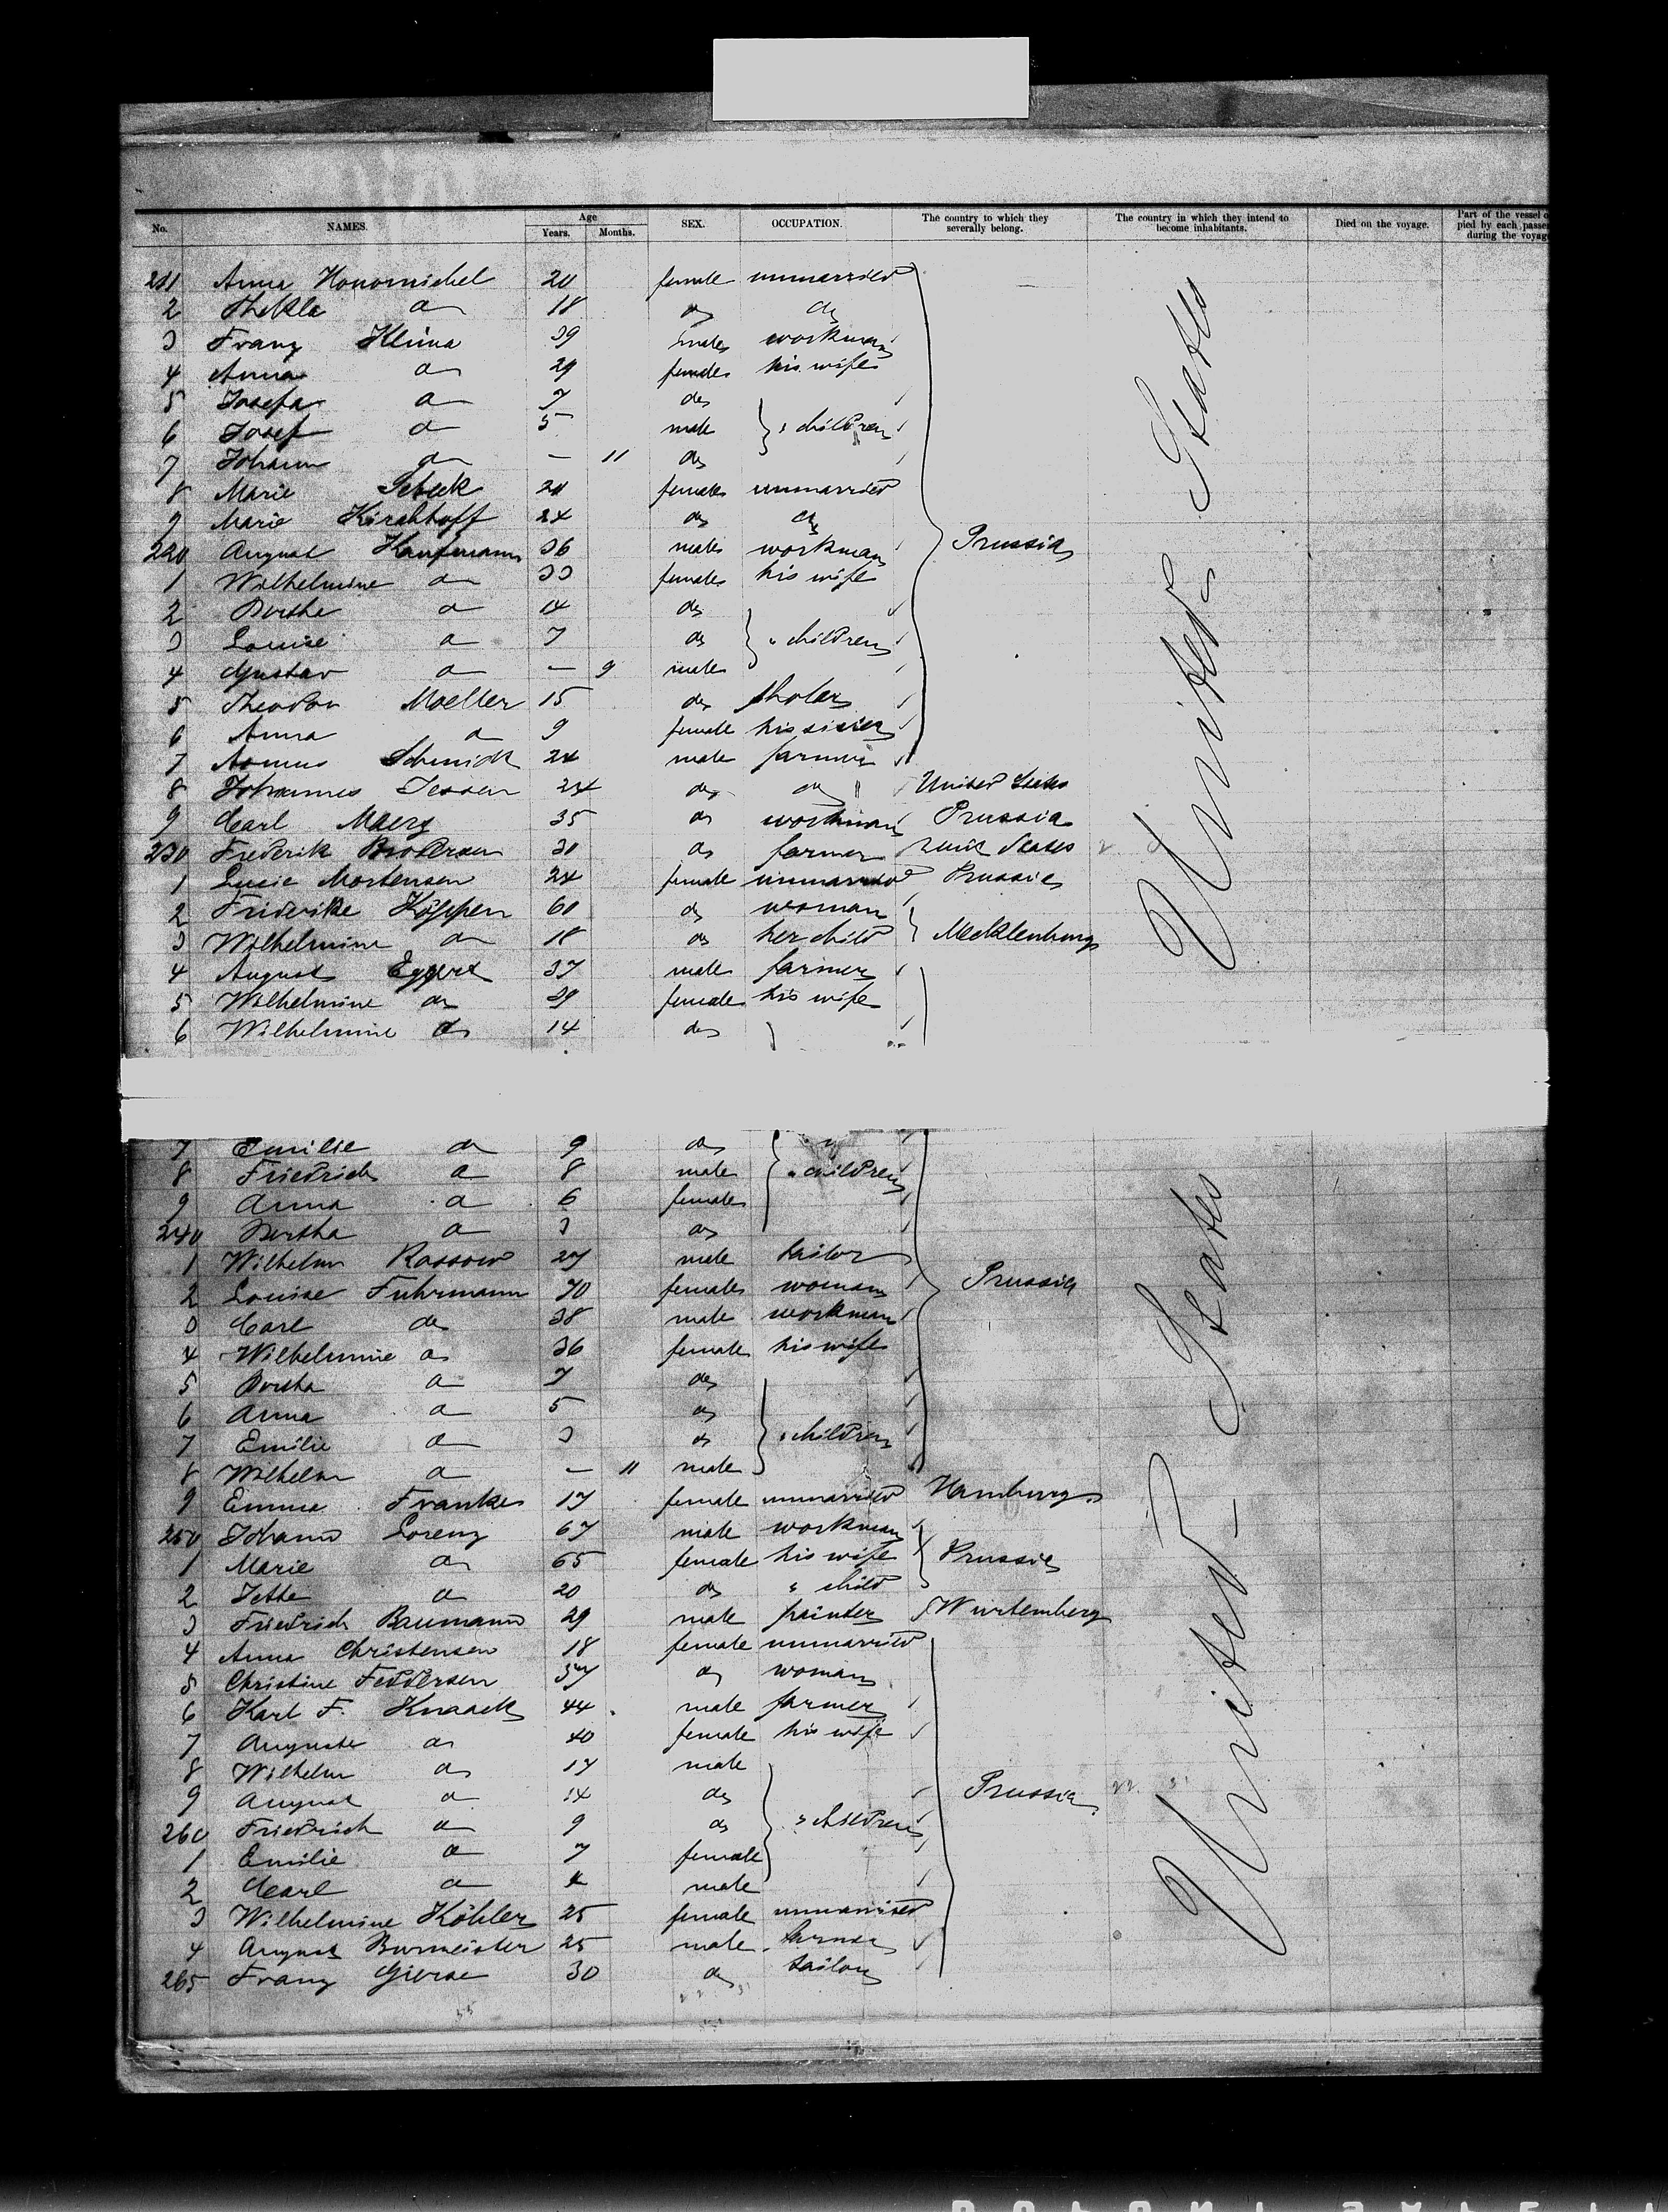 No. NAMES. Age Years. Months. SEX. OCCUPATION. The country to which they severally belong. The country in which they intend to become inhabitants. Died on the voyage. Part of the vessel pied by each passe during the voyag
211 Anna Konomichel 20 female unmarried
2 Thekla do 18 do do
3 Franz Klima 39 male workman
4 Anna do 29 female his wife
5 Josefa do 7 do
6 Josef do 5 male " children
7 Johann do — 11 do
8 Marie female unmarried
9 Marie Kirchhoff 24 do do
220 August Kaufmann 36 male workman Prussia
1 Wilhelmine do 33 female his wife
2 Bertha do 14 do
3 Louise do 7 do " children
4 Gustav do — 9 male
5 Theodor Moeller 15 do scholar
6 Anna do 9 female his sister
7 Asmus Schmidt 24 male farmer
8 Johannes Jessen 24 do do United States
9 Carl 35 do workman Prussia
230 Frederik Brodersen 31 do farmer Unit States
1 Lucie Mortensen 24 female unmarried Prussia
2 Friderike Köppen 60 do woman
3 Wilhelmine do 18 do her child Mecklenburg
4 August Eggert 37 male farmer
5 Wilhelmine do 39 female his wife
6 Wilhelmine do 14 do
United States
7 Emilie do 9 do
8 Friedrich do 8 male " children
9 Anna do 6 female
240 Bertha do 3 do
1 Wilhelm Rassow 27 male tailor
2 Louise Fuhrmann 70 female woman Prussia
3 Carl do 38 male workman
4 Wilhelmine do 36 female his wife
5 Bertha do 7 do
6 Anna do 5 do
7 Emilie do 3 do " children
8 Wilhelm do — 11 male
9 Emma Franke 17 female unmarried Hamburg
250 Johann Lorenz 67 male workman
1 Marie do 65 female his wife Prussia
2 Jette do 20 do " child
3 Friedrich Baumann 29 male painter Wurtemberg
4 Anna Christensen 18 female unmarried
5 Christine Feddersen 57 do woman
6 Karl F. Knaack 44 male farmer
7 Auguste do 40 female his wife
8 Wilhelm do 17 male
9 August do 14 do Prussia
260 Friedrich do 9 do " children
1 Emilie do 7 female
2 Carl do 4 male
3 Wilhelmine Köhler 25 female unmarried
4 August Burmeister 25 male farmer
265 Franz Gierse 30 do tailor
United States